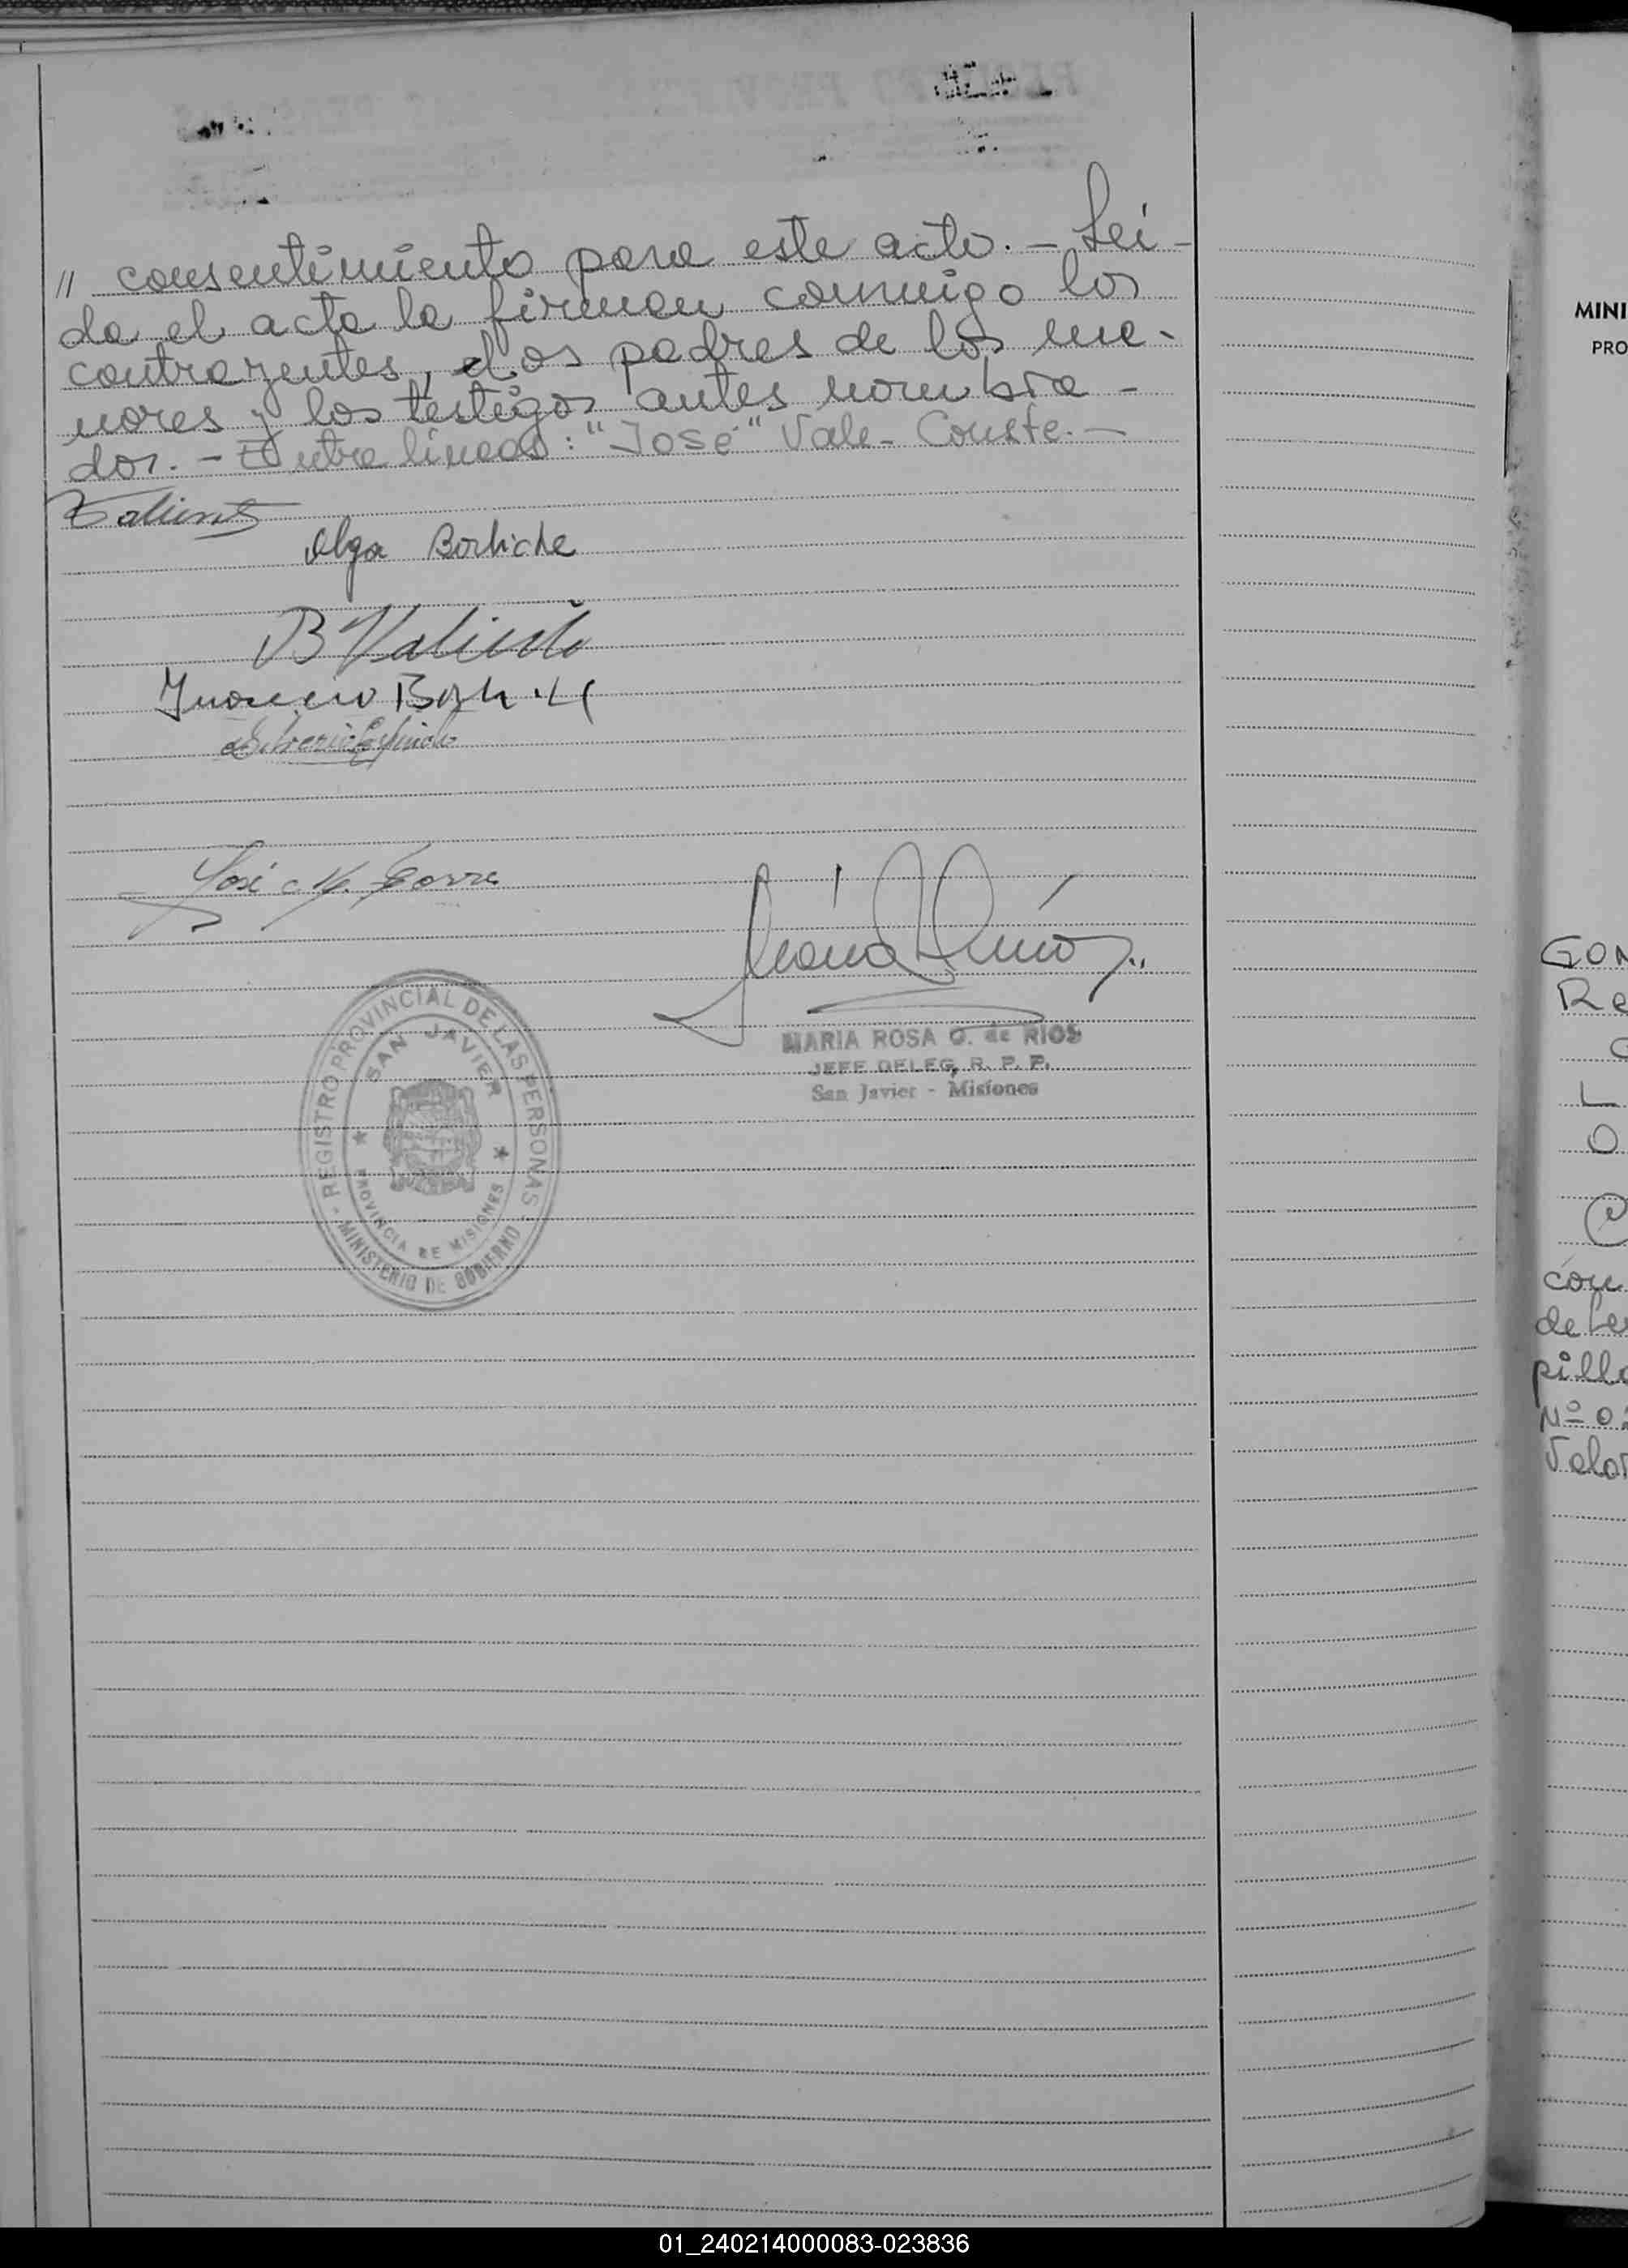 " consentimiento para este acto. - Leí -
da el acta la firman conmigo los
contrayentes, los padres de los me -
nores y los testigos antes nombra -
dos. - Entre líneas: "José" Vale. Conste. -
Olga Borhiche
B Valiente
José M.
MARIA ROSA G. de RIOS
JEFE DELEG. R. P. P.
San Javier - Misiones
REGISTRO PROVINCIAL DE LAS PERSONAS
- MINISTERIO DE GOBIERNO -
SAN JAVIER
PROVINCIA DE MISIONES
MINI
PRO
GON
Re
L
O
con
de Le
pill
Nº 0
Valor
01_240214000083-023836